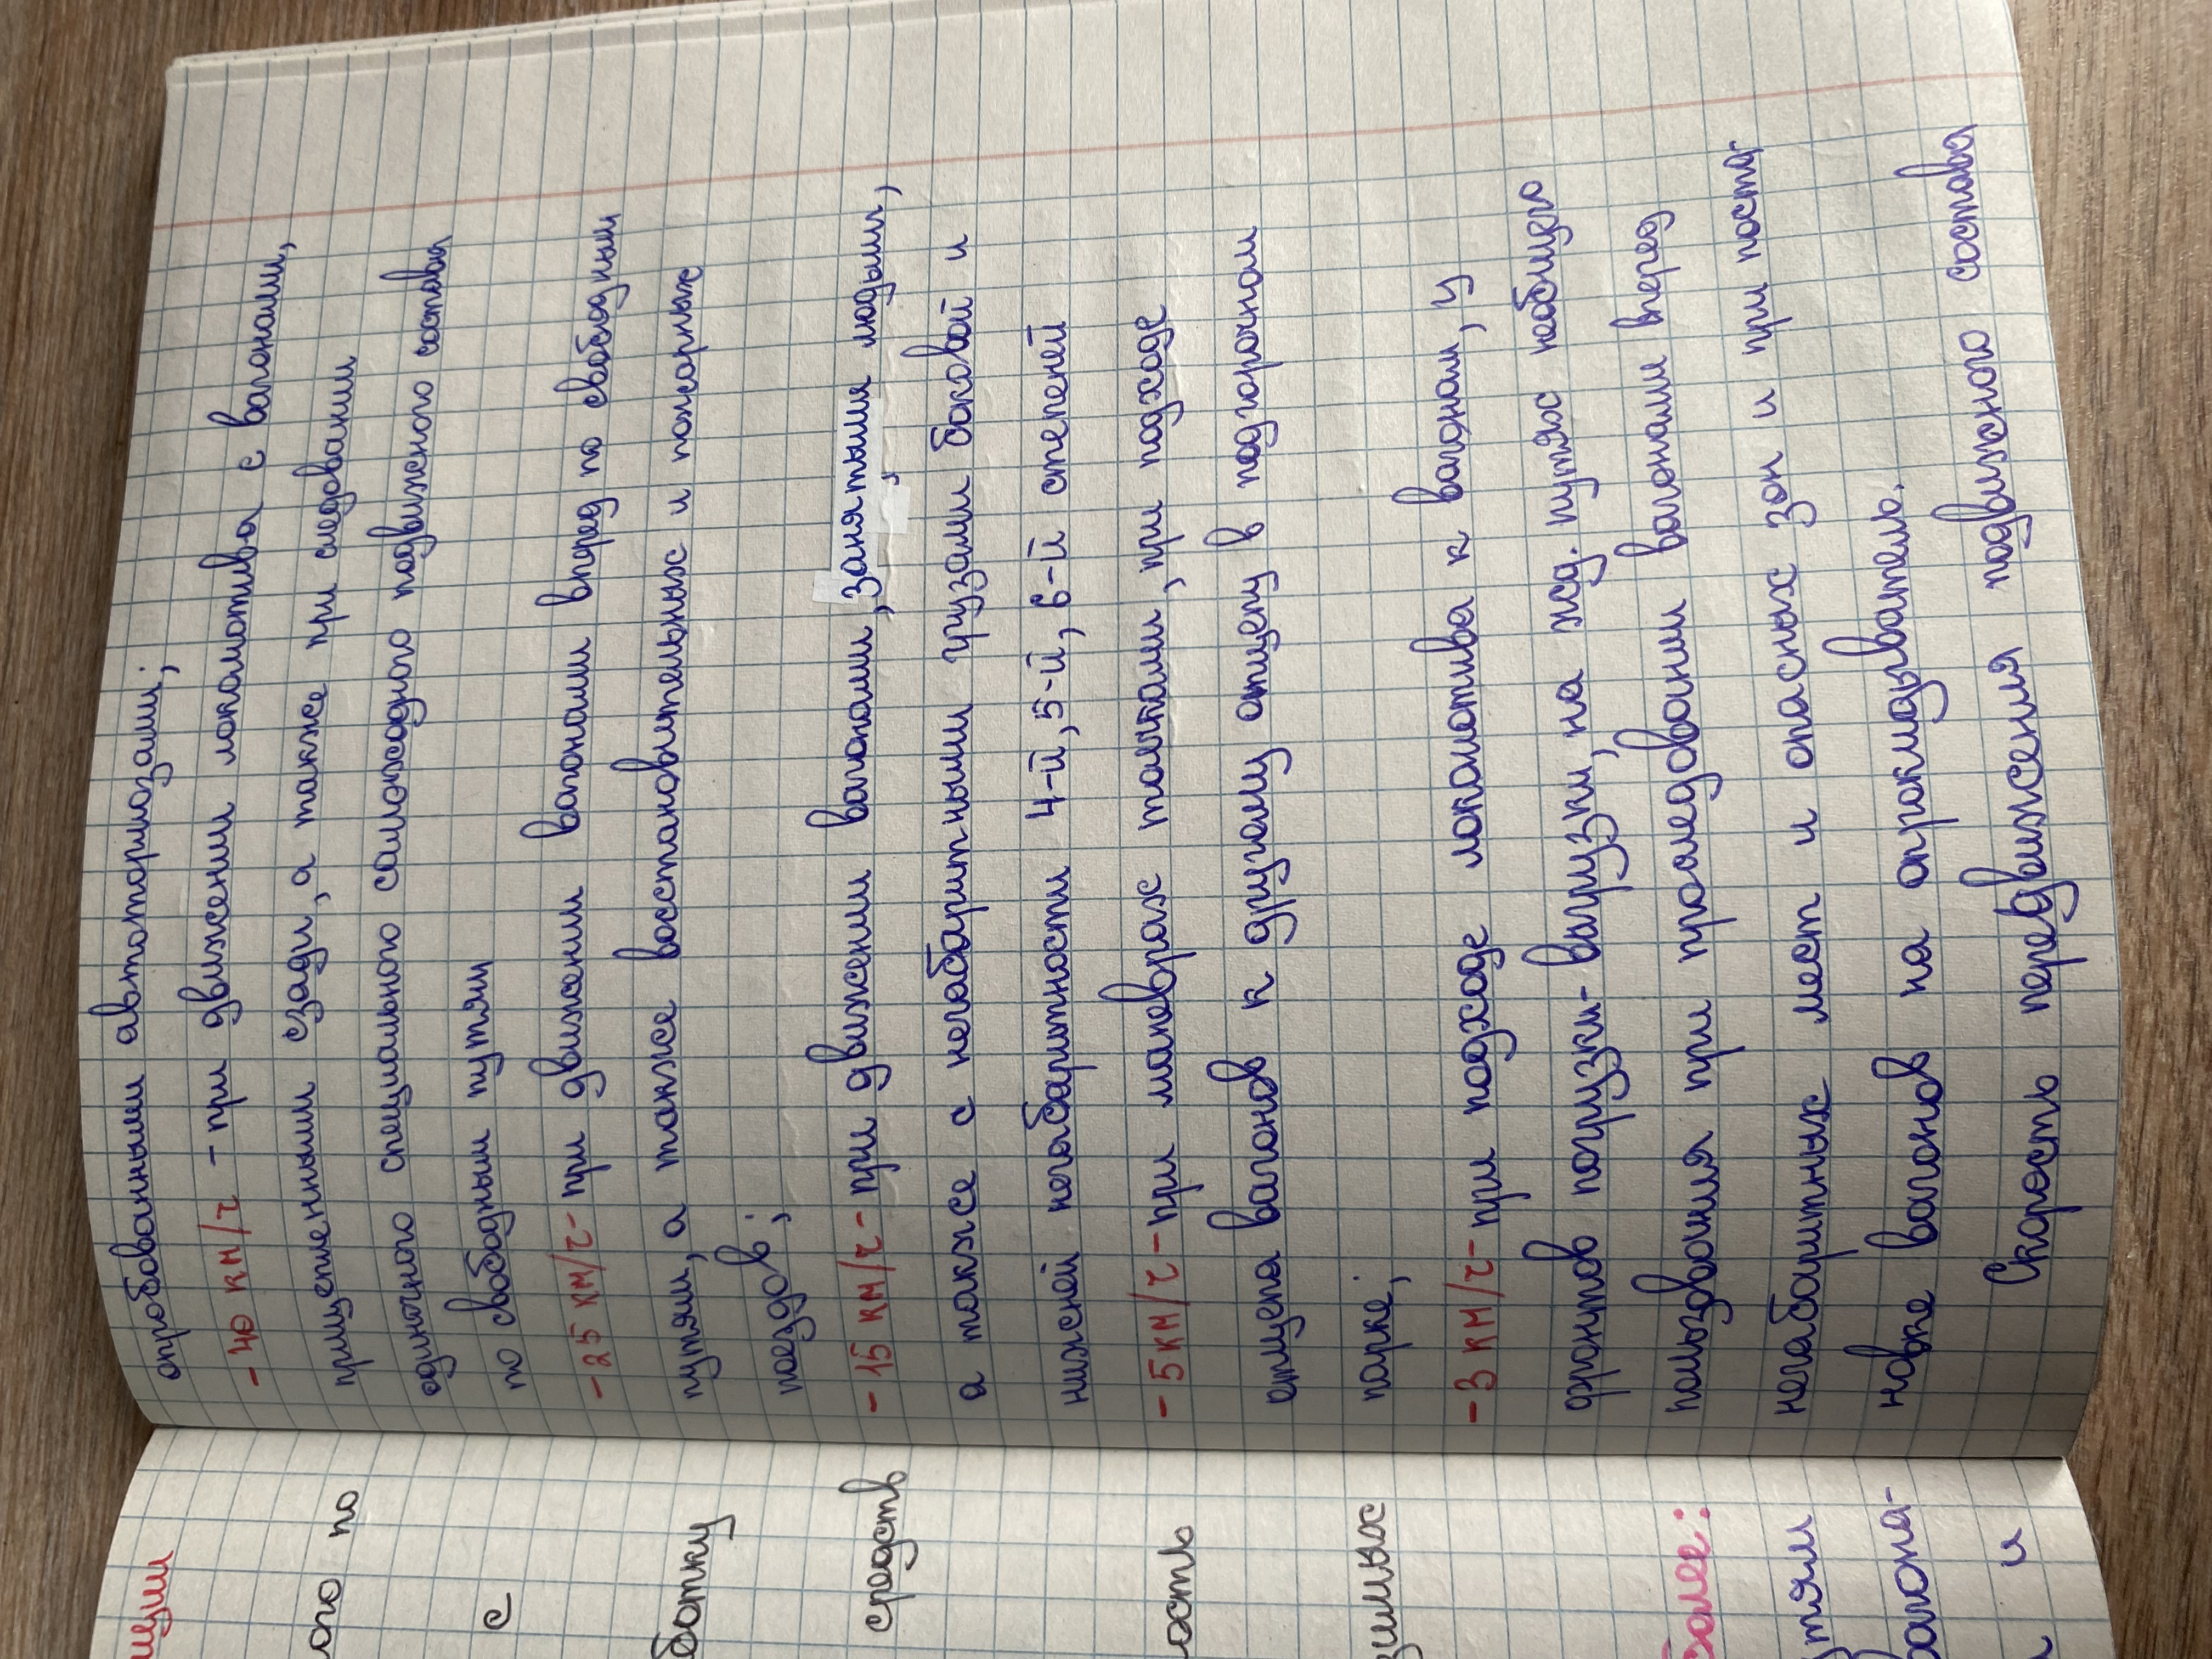 опробованными автотормозами;
- 40 км/ч - при движении локомотива с вагонами,
прицепленными сзади, а также при следовании
одиночного специального самоходного подвижного состава
по свободным путям
- 25 км/ч - при движении вагонами вперед по свободным
путям, а также восстановительных и пожарных
поездов;
- 15 км/ч - при движении вагонами, занятыми людьми,
а также с негабаритными грузами боковой и
нижней негабаритности 4-й, 5-й, 6-й степеней
- 5 км/ч - при маневрах толчками, при подходе
отцепа вагонов к другому отцепу в подгорочном
парке;
- 3 км/ч - при подходе локомотива к вагонам, у
фронтов погрузки-выгрузки, на жд. путях необщего
пользования при проследовании вагонами вперед
негабаритных мест и опасных зон и при поста-
новке вагонов на опрокидыватель.
Скорость передвижения подвижного состава
щими
ого по
с
ботку
средств
ость
зимых
более:
тям
вагона-
и